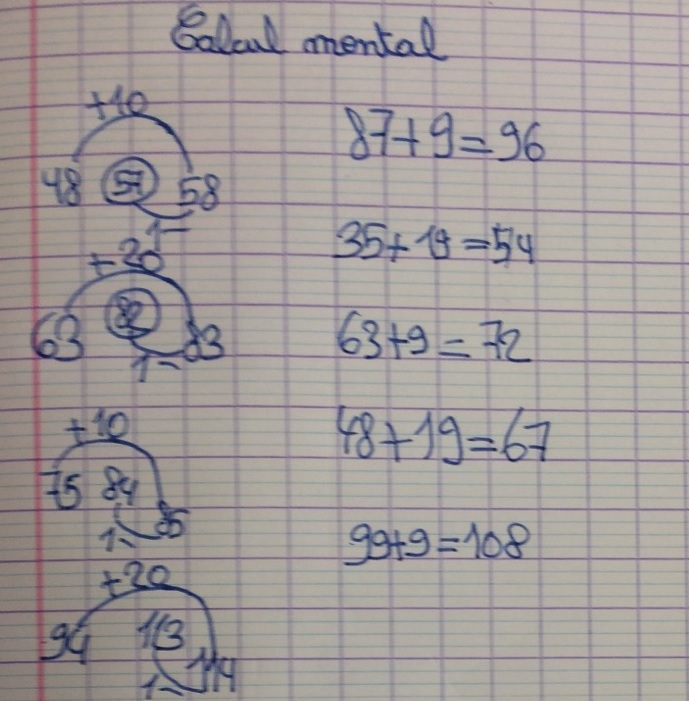 Calcul mental
+10
48 57 58
1-
+20
63 82 83
1-
+10
75 84 85
1-
+20
94 113 114
1-
87+9=96
35+19=54
63+9=72
48+19=67
99+9=108